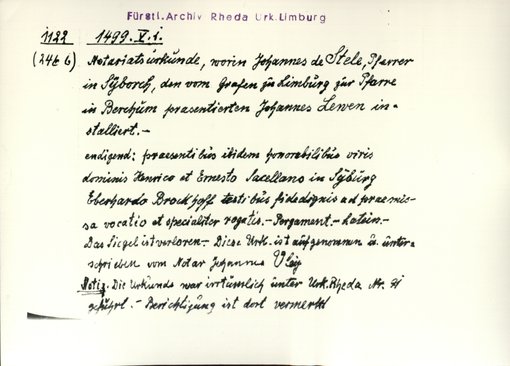 Fürstl. Archiv Rheda Urk. Limburg
1122 1499. V. 1.
(24t 6) Notariatsurkunde, worin Johannes de Stele, Pfarrer
in Sÿborch, den vom Grafen zu Limburg zur Pfarre
in Berchum praesentierten Johannes Lewen in-
stalliert.-
endigend: praesentibus ibidem honorabilibus viris
dominis Henrico et Ernesto Sacellano in Sÿburg
Eberhardo Brockhoff testibus fidedignis ad praemis-
sa vocatio et specialiter rogatis.- Pergament.- Latein.-
Das Siegel ist verloren.- Diese Urk. ist aufgenommen u. unter-
schrieben vom Notar Johannes
Notiz. Die Urkunde war irrtümlich unter Urk. Rheda Nr. 91
geführt.- Berichtigung ist dort vermerkt